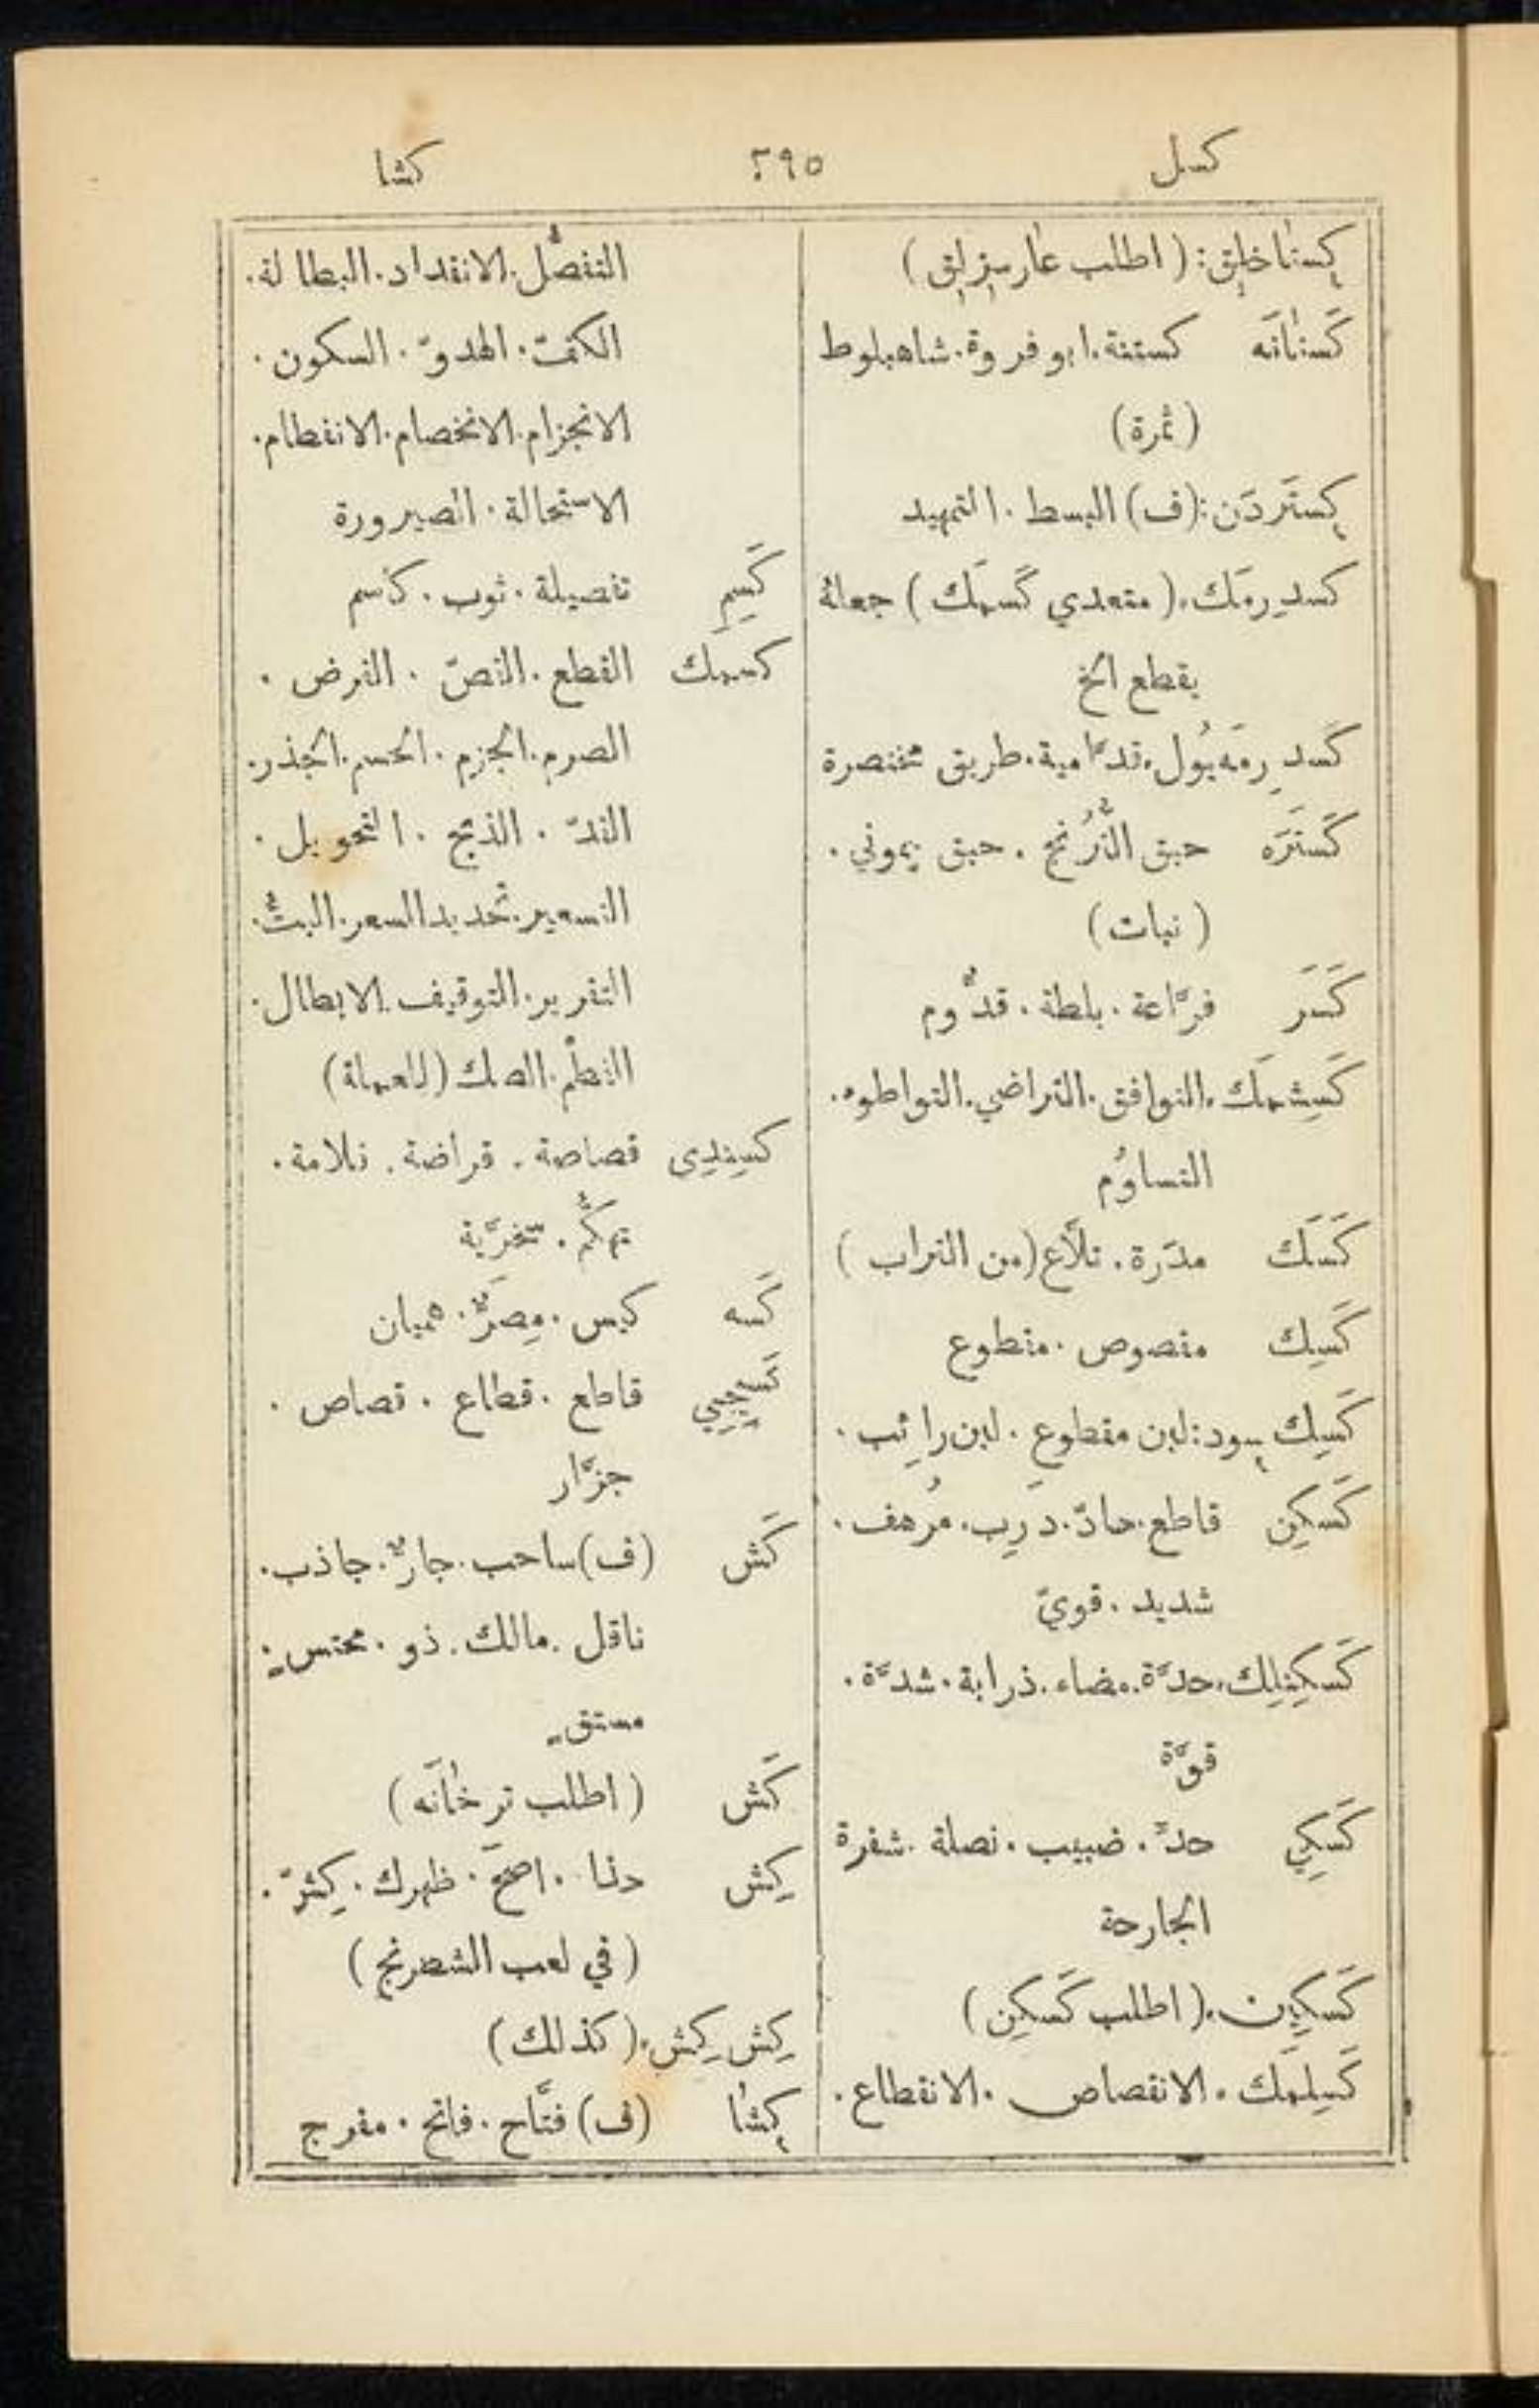 كسل ٢٩٥ كشا
كِستٰاخلِق: (اطلب عٰارسِزلِق)
كَستٰانَه كستنة. ابو فروة. شاهبلوط
(ثمرة)
كِستَردَن: (ف) البسط. التمهيد
كسدِرمَك. (متعدي كَسمَك) جعلهُ
يقطع الخ
كَسدِرمَه يُول. قدَّامية. طريق مختصرة
كَستَرَه حبق التُّرُنج. حبق يموني.
(نبات)
كَسَر فرَّاعة. بلطة. قدُّوم
كَسِشمَك. التوافق. التراضي. التواطوء.
التساوُم
كَسَك مدَرة. تلَّاع (من التراب)
كَسِك مقصوص. مقطوع
كَسِك سود: لبن مقطوع. لبن رائِب.
كَسكِن قاطع. حادّ. دَرِب. مُرهف.
شديد. قويّ
كَسكِنلِك. حدَّة. مضاء. ذرابة. شدَّة.
قوَّة
كَسكِي حدٌّ. ضبيب. نصلة. شفرة
الجارحة
كَسكِين. (اطلب كَسكِن)
كَسِلمَك. الانقصاص. الانقطاع.
التفصُّل. الانقداد. البطالة.
الكفتّ. الهدوّ. السكون.
الانجزام. الانخصام. الانفطام.
الاستحالة. الصيرورة
كَسِم تفصيلة. ثوب. كسم
كسمك القطع. القصّ. القرض.
الصرم. الجزم. الحسم. الجذر.
القدّ. الذبح. التحويل.
التسعير. تحديد السعر. البتُّ.
التقرير. التوقيف. الابطال.
القطْم. الصك (للعملة)
كسِندِى قصاصة. قراضة. قلامة.
تهكُّم. سخرَّية
كَسه كيس. مِصَرٌّ. هميان
كَسِيجِي قاطع. قطاع. قصاص.
جزَّار
كَش (ف) ساحب. جارٌّ. جاذب.
ناقل. مالك. ذو. محتس ـِ
مستق ـٍ
كَش (اطلب ترخٰانَه)
كِش دنا. اصحَ. ظهرك. كِشّ.
(في لعب الشصرنج)
كِش كِش. (كذلك)
كِشٰا (ف) فتَّاح. فاتح. مفرج